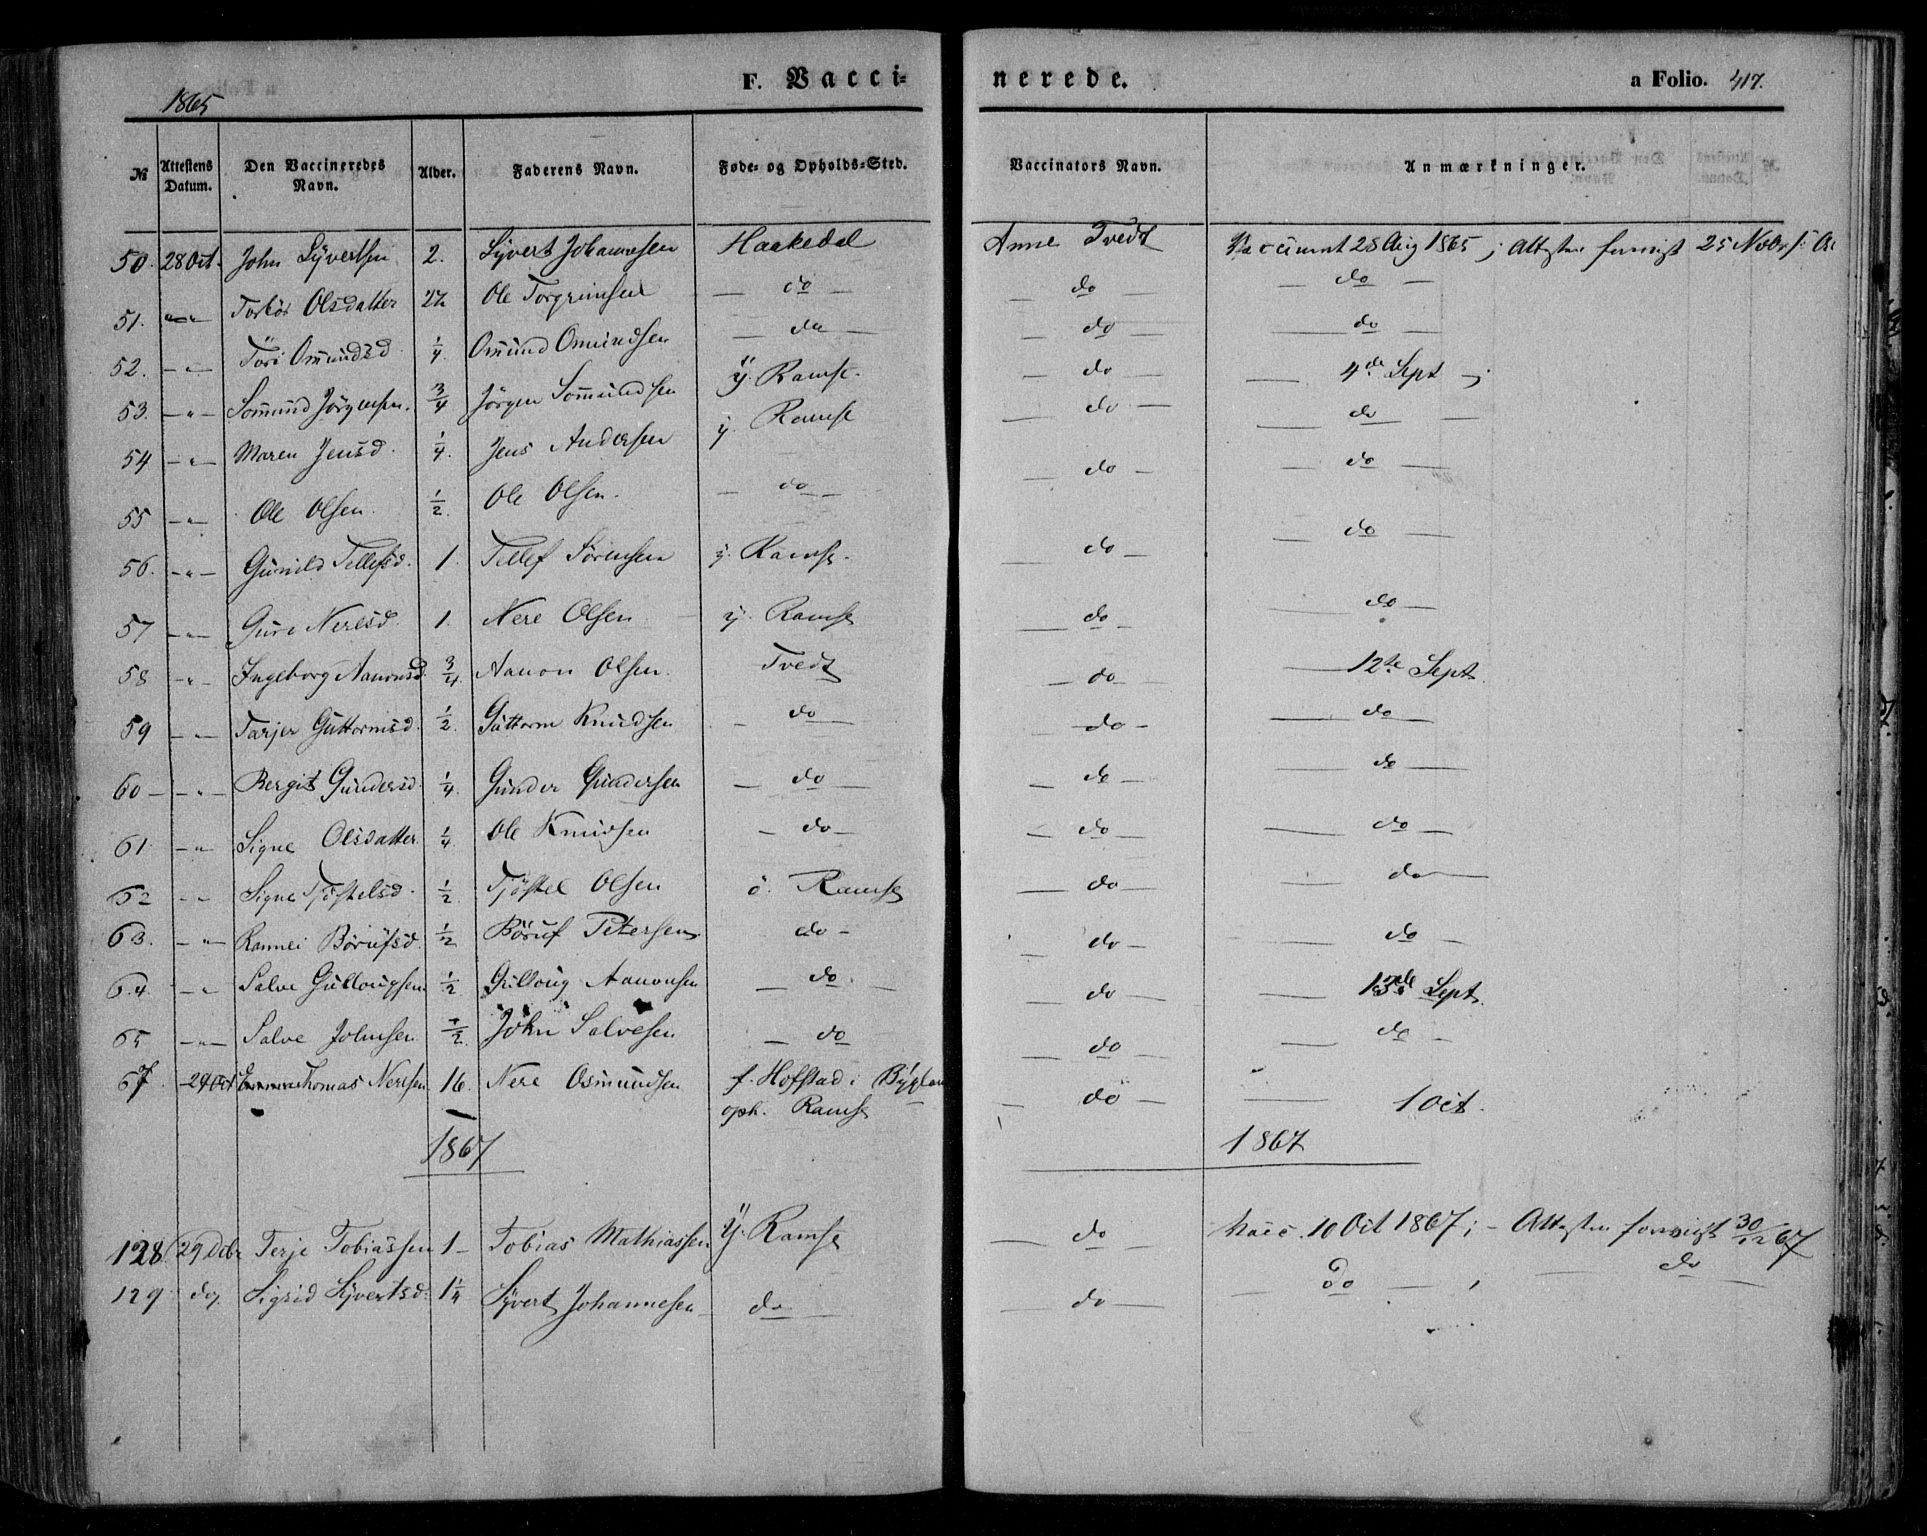 1865
F. Vacci-
nerede.
a Folio. 417.
№ Attestens Datum. Den Vaccineredes Navn. Alder. Faderens Navn. Føde- og Opholds-Sted. Vaccinators Navn. Anmærkninger.
50. 28 Oct. John Syvertsen 2. Syvert Johannesen Haakedal Anne Tvedt Vaccineret 28 Aug 1865; Attesten 25 Nobr
51. — " — Torbör Olsdatter Ole Torgrimsen — do — — do — — do —
52. — " — Töri Omundsd 1/4 Omund Omundsen — do — — do — — do —
53. — " — Sommund Jörgensen. 3/4 Jörgen Sommundsen y. Ramse. — do — — 4de Sept —
54 — " — Maren Jensd. 1/4. Jens Andersen y. Ramse — do — — do —
55 — " — Ole Olsen. 1/2. Ole Olsen. — do — — do — — do —
56. — " — Gunild Tellefsd. 1. Tellef Sörensen y. Ramse. — do — — do —
57 — " — Guro Neresd. 1. Nere Olsen y. Ramse — do — — do —
58 — " — Ingeborg Aanonsd. 3/4. Aanon Olsen. Tvedt — do — — 12te Sept.
59 — " — Tarjer Guttormsd. 1/2. Guttorm Knudsen — do — — do — — do —
60 — — " — Bergit Gundersd. 1/4. Gunder Gundersen — do — — do — — do —
61. — " — Signe Olsdatter 1/4. Ole Knudsen — do — — do — — do —
62 — " — Signe Tjöstelsd. 1/2. Tjöstel Olsen ö. Ramse — do — — do —
63. — " — Rannei Börufsd. 1/2 Böruf Petersen do — — do — — do —
64. — " — Salve Gullougsen 1/2 Gulloug Aanonsen — do. — do — — 13de Sept.
65 — " — Salve Johnsen 1/2. John Salvesen — do — do — — do —
67. — 29 Oct Thomas Neresen 16. Nere Osmundsen f. Hofstad i Bygland
oph. Ramse — do — — 1 Oct.
1867
1867
128. 29 Dcbr Terje Tobiassen 1 — Tobias Mathiassen y. Ramse — do Vacc. 10 Oct 1867; — Attesten 30/12 67
129 do. Sigrid Syvertsd. 1 1/4 Syvert Johannesen — do — — do — — Do — , — do —